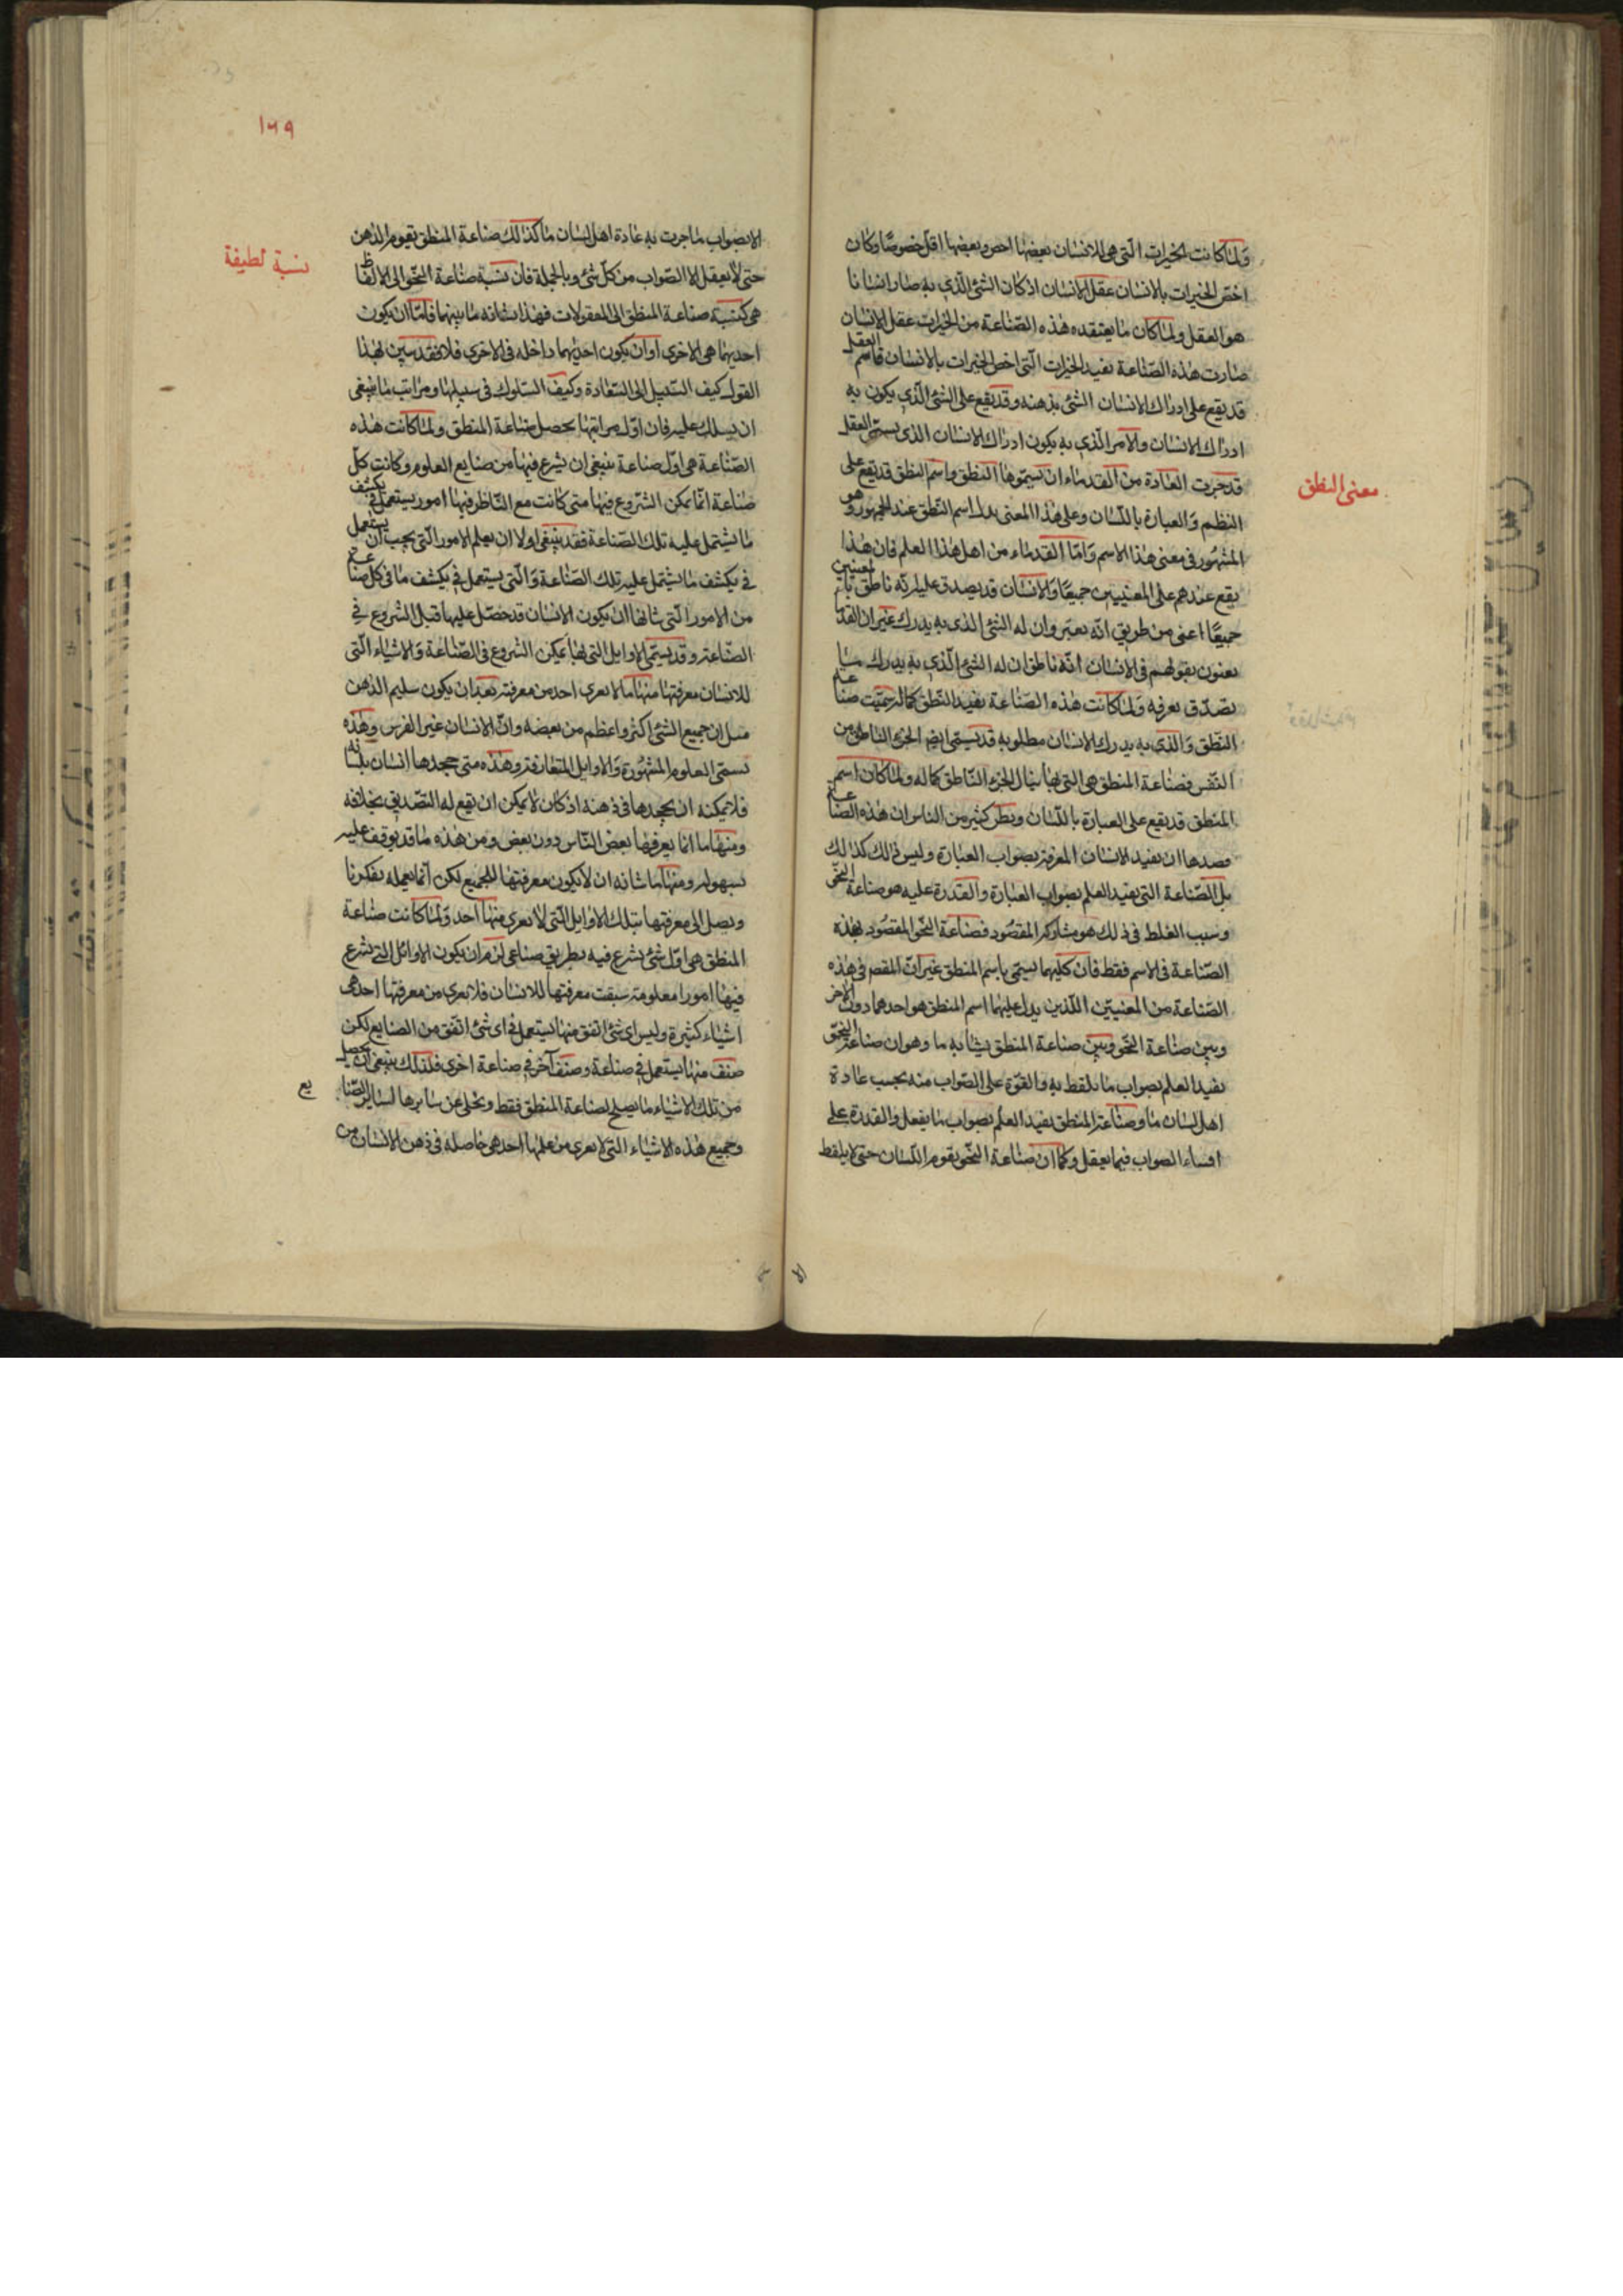 ولما كانت الخيرات التي هي للانسان بعضها اخص وبعضها اقل خصوصا وكان
اخص الخيرات بالانسان عقل الانسان اذ كان الشئ الذي به صار انسانا
هو العقل ولما كان ما يعتقده هذه الصناعة من الخيرات عقل الانسان
صارت هذه الصناعة تفيد الخيرات التي اخص الخيرات بالانسان فاسم العقل
قد يقع على ادراك الانسان الشئ بذهنه وقد يقع على الشئ الذي يكون به
ادراك الانسان والامر الذي به يكون ادراك الانسان الذي يسمى العقل
قد جرت العادة من القدماء ان يسموها النطق واسم النطق قد يقع على
معنى النطق
النظم والعبارة باللسان وعلى هذا المعنى يدل اسم النطق عند الجمهور وهو
المشهور في معنى هذا الاسم واما القدماء من اهل هذا العلم فان هذا
يقع عندهم على المعنيين جميعا والانسان قد يصدق عليه انه ناطق بالمعنيين
جميعا اعني من طريق انه يعبر وان له الشئ الذي به يدرك غير ان القدما
يعنون بقولهم في الانسان انه ناطق ان له الشئ الذي به يدرك ما
تصدق تعرفه ولما كانت هذه الصناعة تفيد النطق كماله سميت صناعة
النطق والذي به يدرك الانسان مطلوبه قد يسمى ايضا الجزء الناطق من
النفس فصناعة المنطق هي التي بها ينال الجزء الناطق كماله ولما كان اسم
المنطق قد يقع على العبارة باللسان ويظن كثير من الناس ان هذه الصناعة
قصدها ان تفيد الانسان المعرفة بصواب العبارة وليس ذلك كذالك
بل الصناعة التي تفيد العلم بصواب العبارة والقدرة عليه هو صناعة النحو
وسبب الغلط في ذلك هو مشاركة المقصود فصناعة النحو المقصود بهذه
الصناعة في الاسم فقط فان كليهما يسمى باسم المنطق غير ان المقص في هذه
الصناعة من المعنيين اللذين يدل عليهما اسم المنطق هو احدهما دون الاخر
وبين صناعة النحو وبين صناعة المنطق تشابه ما وهو ان صناعة النحو
تفيد العلم بصواب ما يلفظ به والقوة على الصواب منه بحسب عادة
اهل لسان ما وصناعة المنطق تفيد العلم بصواب ما يعقل والقدرة على
اقتناء الصواب فيما يعقل وكما ان صناعة النحو يقوم اللسان حتى لا يلفظ
١٦٩
الا بصواب ما جرت به عادة اهل لسان ما كذالك صناعة المنطق يقوم الذهن
نسبة لطيفة
حتى لا يعقل الا الصواب من كل شئ وبالجملة فان نسبة صناعة النحو الى الالفاظ
هي كنسبة صناعة المنطق الى المعقولات فهذا تشابه ما بينهما فاما ان يكون
احديهما هي الاخرى او ان يكون احديهما داخله في الاخرى فلا فقد تبين بهذا
القول كيف السبيل الى السعادة وكيف السلوك في سبيلها ومراتب ما ينبغي
ان يسلك عليه فان اول مراتبها تحصيل صناعة المنطق ولما كانت هذه
الصناعة هي اول صناعة ينبغي ان يشرع فيها من صنايع العلوم وكانت كل
صناعة انما يمكن الشروع فيها متى كانت مع الناظر فيها امور يستعمل في يكشف
ما يشتمل عليه تلك الصناعة فقد ينبغي اولا ان يعلم الامور التي يجب ان يستعمل
في يكشف ما يشتمل عليه تلك الصناعة والتي يستعمل في يكشف ما في كل صناعة
من الامور التي شانها ان يكون الانسان قد حصل عليها قبل الشروع في
الصناعة وقد يسمى الاوايل التي بها يمكن الشروع في الصناعة والاشياء التي
للانسان معرفتها منها ما لا يعرى احد من معرفته بعد ان يكون سليم الذهن
مثل ان جميع الشئ اكثر واعظم من بعضه وان الانسان غير الفرس وهذه
تسمى العلوم المشهورة والاوايل المتعارفة وهذه متى جحدها انسان بلسانه
فلا يمكنه ان يجحدها في ذهنه اذ كان لا يمكن ان يقع له التصديق بخلافه
ومنها ما انما يعرفها بعض الناس دون بعض ومن هذه ما قد يوقف عليه
بسهوله ومنها ما شانه ان لا يكون معرفتها للجميع لكن انما نعلمه بفكرنا
ونصل الى معرفتها بتلك الاوايل التي لا يعرى منها احد ولما كانت صناعة
المنطق هي اول شئ يشرع فيه بطريق صناعي لزم ان يكون الاوائل التي يشرع
فيها امورا معلومة سبقت معرفتها للانسان فلا يعرى من معرفتها احد هي
اشياء كثيرة وليس اى شئ اتفق منها يستعمل في اى شئ اتفق من الصنايع لكن
صنف منها يستعمل في صناعة وصنف آخر في صناعة اخرى فلذلك ينبغي ان يحصل
من تلك الاشياء ما يصلح لصناعة المنطق فقط ونخلي عن سايرها لساير الصنايع
وجميع هذه الاشياء التي لا يعرى من علمها احد هي حاصله في ذهن الانسان من